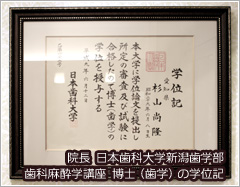 学位記
愛知県
杉山尚隆
本大学に学位論文を提出し
所定の審査及び試験に
合格したので博士(歯学)の
学位を授与する
日本歯科大学
院長 日本歯科大学新潟歯学部
歯科麻酔学講座:博士(歯学)の学位記